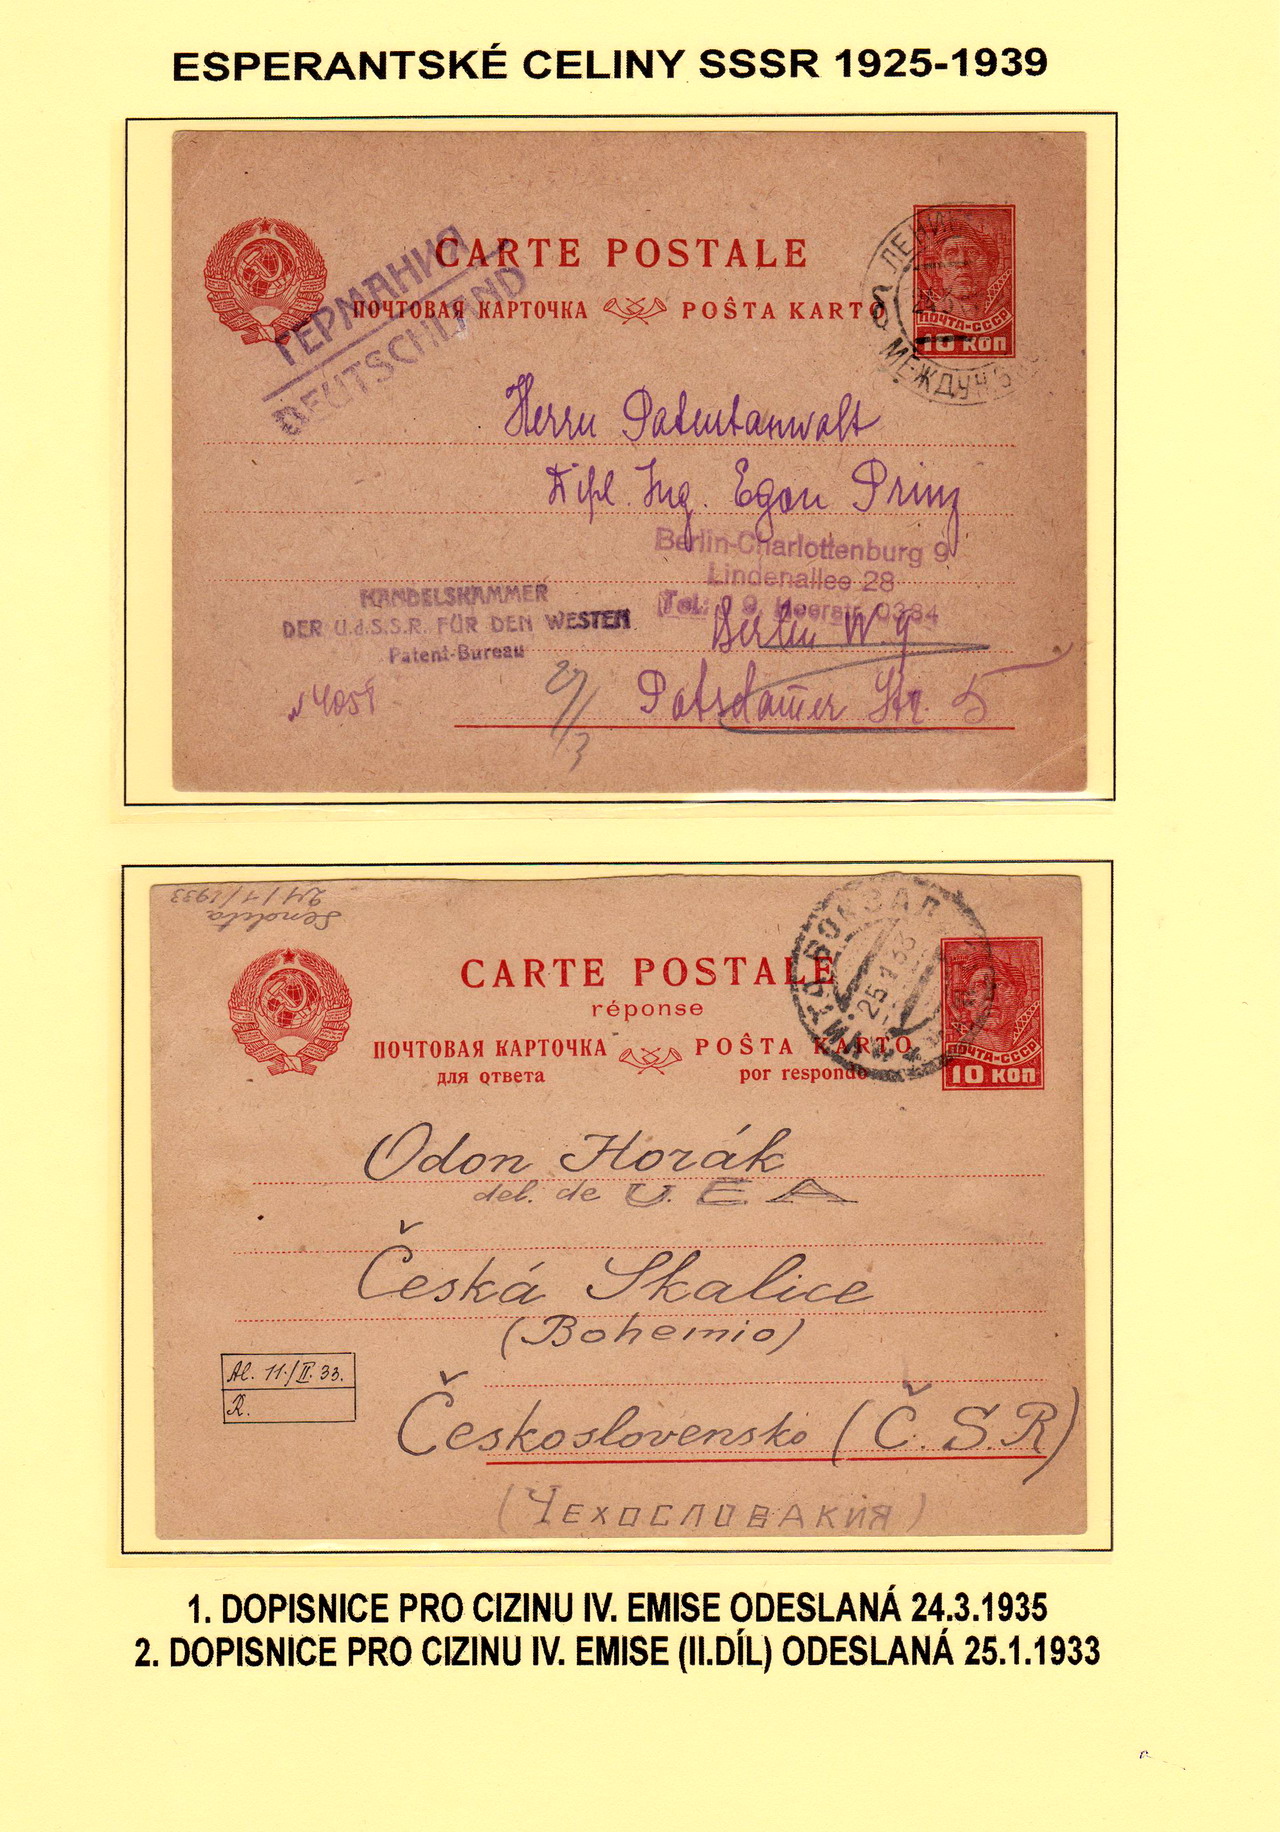 ESPERANTSKÉ CELINY SSSR 1925-1939
CARTE POSTALE
ПОЧТОВАЯ КАРТОЧКА POŜTA KARTO
ГЕРМАНИЯ
DEUTSCHLAND
ПОЧТА-СССР
10 КОП
Herrn Patentanwalt
Dipl. Ing. Egon Prinz
Berlin-Charlottenburg 9
Lindenallee 28
Tel.: 9, Heerstr. 0384
Berlin W. 9
Potsdamer Str. 5
HANDELSKAMMER
DER U.d.S.S.R. FÜR DEN WESTEN
Patent-Bureau
27/3
Sendita
24/1/1933
ВОКЗАЛ
25 1 33
CARTE POSTALE
réponse
ПОЧТОВАЯ КАРТОЧКА POŜTA KARTO
для ответа por respondo
ПОЧТА-СССР
10 КОП
Odon Horák
del. de U.E.A
Česká Skalice
(Bohemio)
Al. 11./II. 33.
R.
Československo (Č.S.R)
(ЧЕХОСЛОВАКИЯ)
1. DOPISNICE PRO CIZINU IV. EMISE ODESLANÁ 24.3.1935
2. DOPISNICE PRO CIZINU IV. EMISE (II.DÍL) ODESLANÁ 25.1.1933